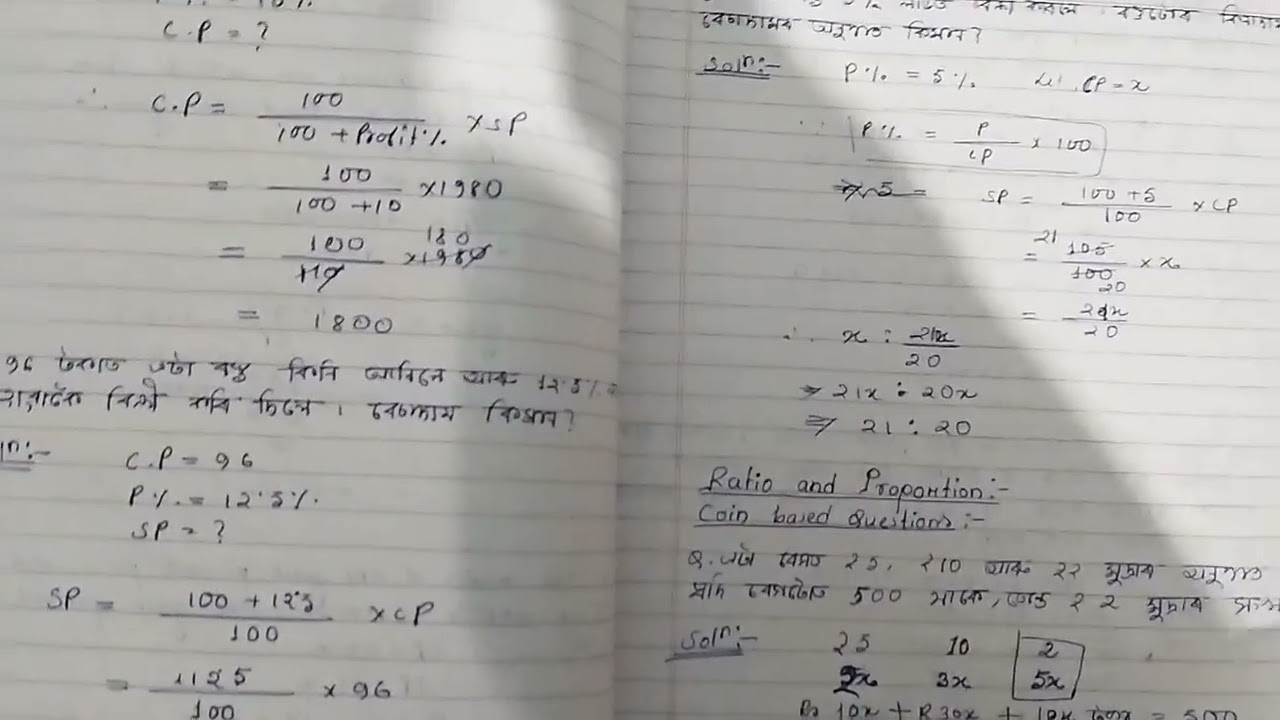 C.P = ?
∴ C.P = 100 / 100 + Profit % × SP
= 100 / 100 + 10 × 1980
= 100 / 110 × 1980 180
= 1800
96 টকাত এটা বস্তু কিনি
বিক্ৰী কৰি দিলে। বেচাদাম কিমান?
Soln:-
C.P = 96
P % = 12.5 %.
SP = ?
SP = 100 + 12.5 / 100 × CP
= 112.5 / 100 × 96
অনুপাত কিমান?
Soln:- P % = 5 % CP = x
∴ P % = P / CP × 100
SP = 100 + 5 / 100 × CP
= 21 105 / 100 20 × x
= 21x / 20
∴ x : 21x / 20
⇒ 21x : 20x
⇒ 21 : 20
Ratio and Proportion:-
Coin based Questions:-
Q. এটা ₹5, ₹10 আৰু ₹2 মুদ্ৰাৰ অনুপাত
যদি 500 থাকে, তেন্তে ₹2 মুদ্ৰাৰ
Soln:- ₹5 10 2
2x 3x 5x
10x + 30x + 10x = 500